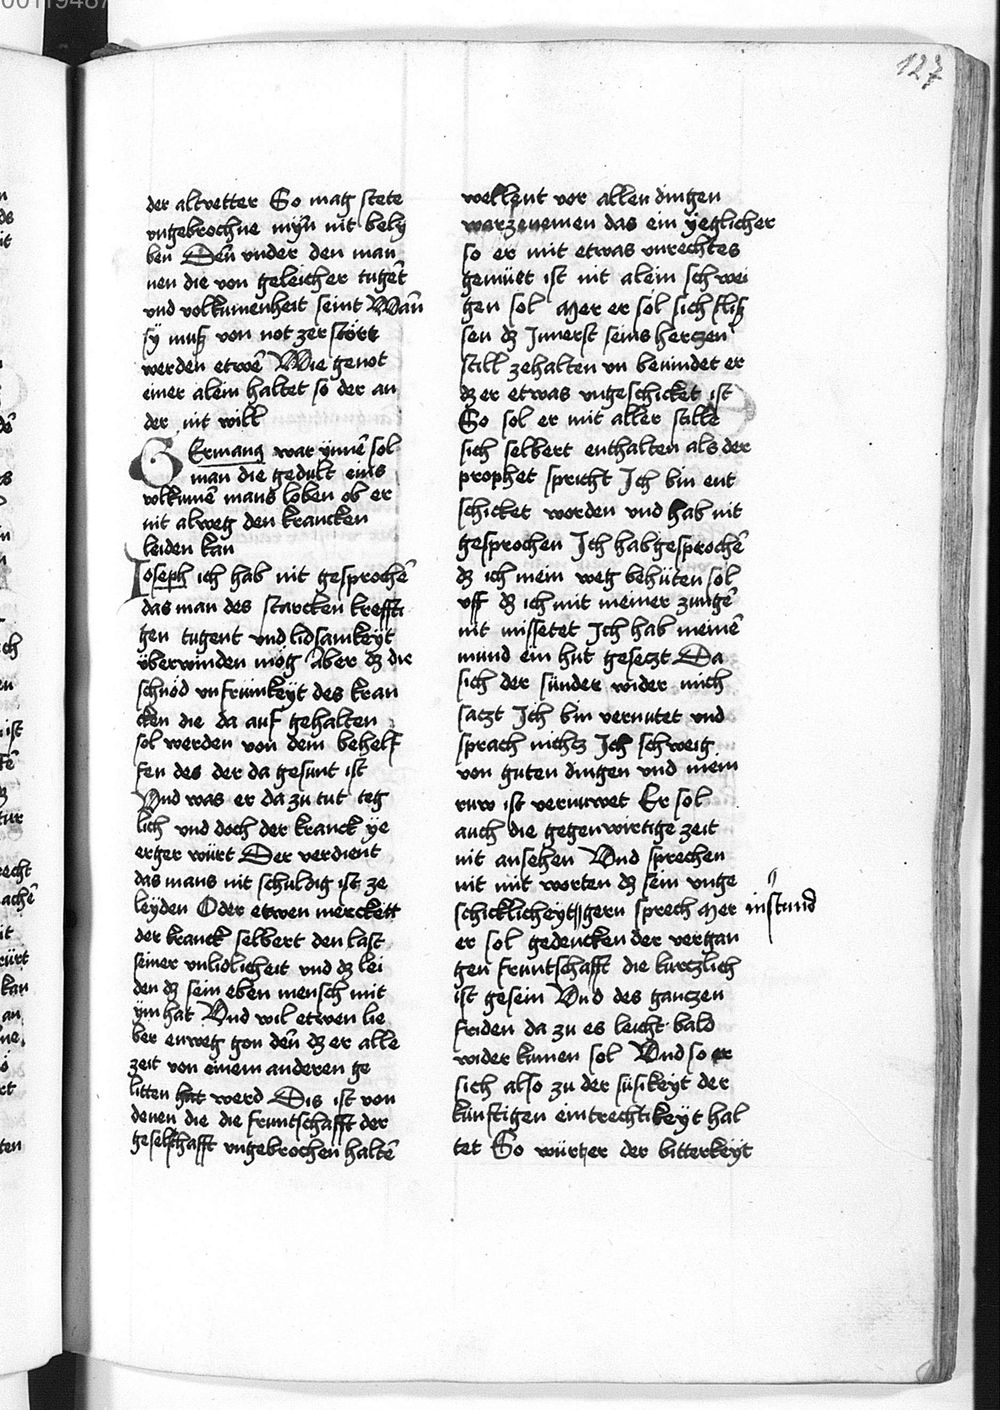 127
der altvetter So mag stete
vngebrochne mÿñ nit belÿ
ben Deñ vnder den man
nen die von geleicher tugẽt
vnd volkumenheit seint Wañ
sÿ muß von not zerstört
werden etwẽ Wie genot
einer alein haltet so der an
der nit will
GErmang war ÿnnẽ sol
man die gedult eins
volkumẽ mans loben ob er
nit alweg den krancken
leiden kan
Joseph ich hab nit gesprochẽ
das man des starcken kreffti
gen tugent vnd lidsamkeÿt
überwinden mög Aber dz die
schnöd vnfrümkeÿt des kran
cken die da auf gehalten
sol werden von dem behelf
fen des der da gesunt ist
Vnd was er da zu tut teg
lich vnd doch der kranck ÿe
erger würt Der verdient
das mans nit schuldig ist ze
leÿden Oder etwen merckett
der kranck selbert den last
seiner vnlidlicheit vnd dz lei
den dz sein eben mensch mit
ÿm hat Vnd wil etwen lie
ber enweg gon deñ dz er alle
zeit von einem anderen ge
litten hat werd Dis ist von
denen die die fruntschafft der
geselschafft vngebrochen haltẽ
wellent vor allen dingen
warzenemen das ein ÿeglicher
so er mit etwas vnrechtes
gemüet ist nit alein schwei
gen sol Mer er sol sich fliß
sen dz Jnnerst seins herczen
still zehalten vn beuindet er
dz er etwas vngeschicket ist
So sol er mit aller stille
sich selbert enthalten als der
prophet spricht Jch bin ent
schicket worden vnd hab nit
gesprochen Jch hab gesprochẽ
dz ich mein weg behüten sol
vff dz ich mit meiner zungẽ
nit missetet Jch hab meinẽ
mund ein hut gesetzt Da
sich der sünder wider mich
satzt Jch bin vernutet vnd
sprach nichtz Jch schweig
von guten dingen vnd mein
ruw ist vernuwet Er sol
auch die gegenwirtige zeit
nit ansehen Vnd sprechen
nit mit worten dz sein vnge
schicklicheyt gern sprech Mer instund
er sol gedencken der vergan
gen fruntschafft die kurczlich
ist gesein Vnd des ganczen
friden da zu es leicht bald
wider kumen sol Vnd so er
sich also zu der süsikeÿt der
künftigen eintrechtikeÿt hal
tet So würt er der bitterkeÿt